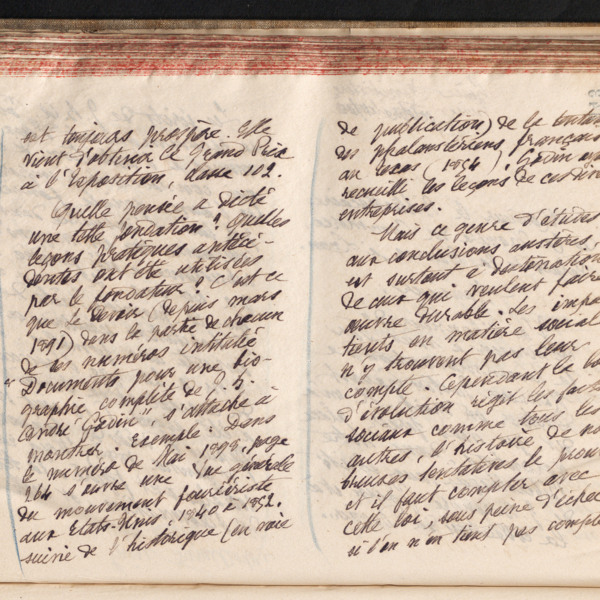 est toujours prospère. Elle
vient d'obtenir le Grand Prix
à l'Exposition, classe 102.
Quelle pensée a dicté
une telle fondation ? Quelles
leçons pratiques antécé-
dentes ont été utilisées
par le fondateur ? C'est ce
que le Devoir (depuis mars
1891) dans la partie de chacun
de ses numéros intitulée
"Documents pour une bio-
graphie complète de J. B.
André Godin", s'attache à
montrer. Exemple : Dans
le numéro de Mai 1898, page
264 s'ouvre une Vue générale
du mouvement fouriériste
aux Etats-Unis, 1840 à 1852.
suivie de l'historique (en voie
de publication) de la
des phalanstériens français
au Texas (1854). Godin
recueilli les leçons de ces
entreprises.
Mais ce genre d'études
aux conclusions austères,
est surtout à destination
de ceux qui veulent faire
œuvre durable. Les
en matière social
n'y trouvent pas leur
compte. Cependant la
d'évolution régit les faits
sociaux comme tous les
autres, l'histoire de
tentatives le
et il faut compter avec
cette loi, sous peine
si l'on n'en tient pas